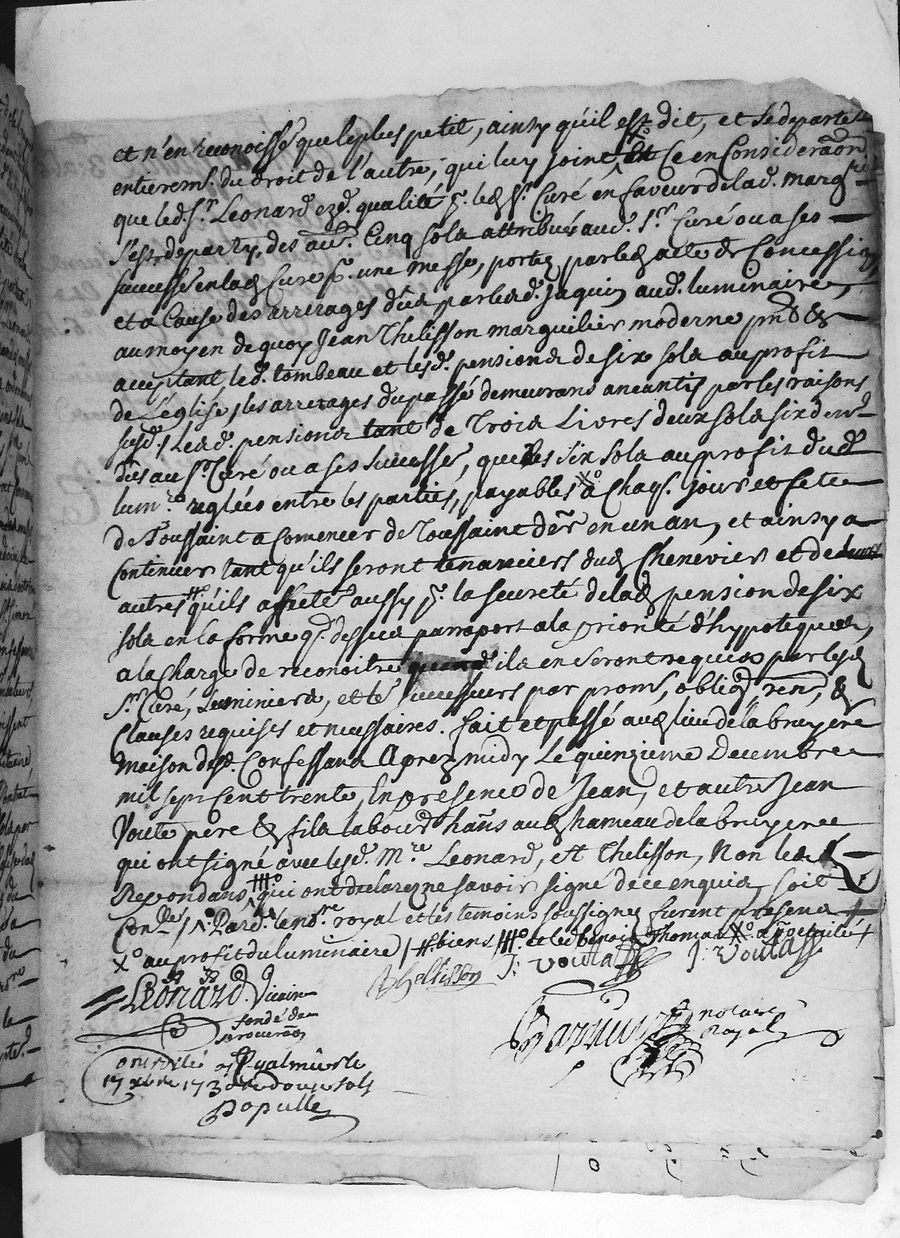 et n'en reconoisse que le plus petit, ainsy qu'il est dit, et se departe
entieremt. du droit de l'autre, qui luy joint, Et Ce en Consideraon
que led. Sr. Leonard ezd. qualité pr. led Sr. Curé en faveur de lad. marq
s'est departy, des aud. Cinq sols attribués aud. Sr. Curé ou a ses
successe en lad Cure pr. une messe, portez par led acte de Concession
et a Cause des arrerages dûs par lesd. Jaquin aud. luminaire,
au moyen de quoy Jean Thelisson marguilier moderne pnt &
acceptant led. tombeau et lesd. pensions de six sols au profit
de L'église, les arrerages du passé demeurans aneantis par les raisons
susd. Lesd. pensions tant de Trois Livres deux sols six den.
dûs au Sr. Curé ou a ses successe, que les six sols au profit dud.
lumre. reglées entre les parties, payables Xo a Chaq. jour et fete
de Toussaint a Comencer de Toussaint der en un an, et ainsy a
Continuer tant qu'ils seront tenanciers dud Chenevier et de
autres # qu'ils affecté aussy pr. la seureté de lad pension de six
sols en la forme q. dessus par raport a la priorité d'hypoteques,
a la Charge de reconoitre quand ils en seront requis par lesd
Sr. Curé, Luminiers, et le successeurs par proms, obligon, renon, &
Clauses requises et necessaires. fait et passé aud lieu de la bruyere
maison desd. Confessans Aprez midy Le quinzieme Decembre
mil sept cent trente, En presence de Jean, et autre Jean
Voute pere & fils labourd. hans aud hameau de la bruyere
qui ont signé avec lesd. Mre Leonard, et Thelisson, Non les
Repondans qui ont declaré ne savoir signé de ce enquis, soit
Conlé. Pard. le nore royal et les temoins soussignes furent presens
Xo au profit du luminaire / # biens et led Benoit Thomas Xo
Leonard. Vicaire
Thelisson J: Voutass J: Voutass
fondé de
procuraon
notaire
Royal
Controllé a St. Galmier le
17 xbre 1730 de douze sols
Populle